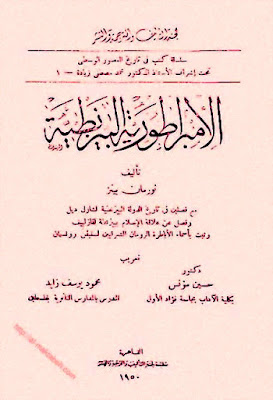 لجنة التأليف والترجمة والنشر
سلسلة كتب في تاريخ العصور الوسطى
تحت إشراف الأستاذ الدكتور محمد مصطفى زيادة — ١
الإمبراطورية البيزنطية
تأليف
نورمان بينز
مع فصلين في تاريخ الدولة البيزنطية لشارل ديل
وفصل عن علاقة الإسلام ببيزنطة لفازلييف
وثبت بأسماء الأباطرة الرومان الشرقيين لستيفن رونسيمان
تعريب
دكتور
حسين مؤنس
محمود يوسف زايد
بكلية الآداب بجامعة فؤاد الأول
المدرس بالمدارس الثانوية بفلسطين
القاهرة
مطبعة لجنة التأليف والترجمة والنشر
١٩٥٠